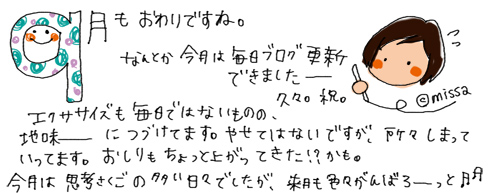 9月も おわりですね。
なんとか 今月は 毎日ブログ 更新
できました——
久々。祝。
©missa
エクササイズも 毎日ではないものの、
地味—— に つづけてます。やせてはないですが、所々 しまって
いってます。おしりも ちょっと上がってきた!?かも。
今月は 思考さくごの 多い日々でしたが、来月も色々がんばろ——っと